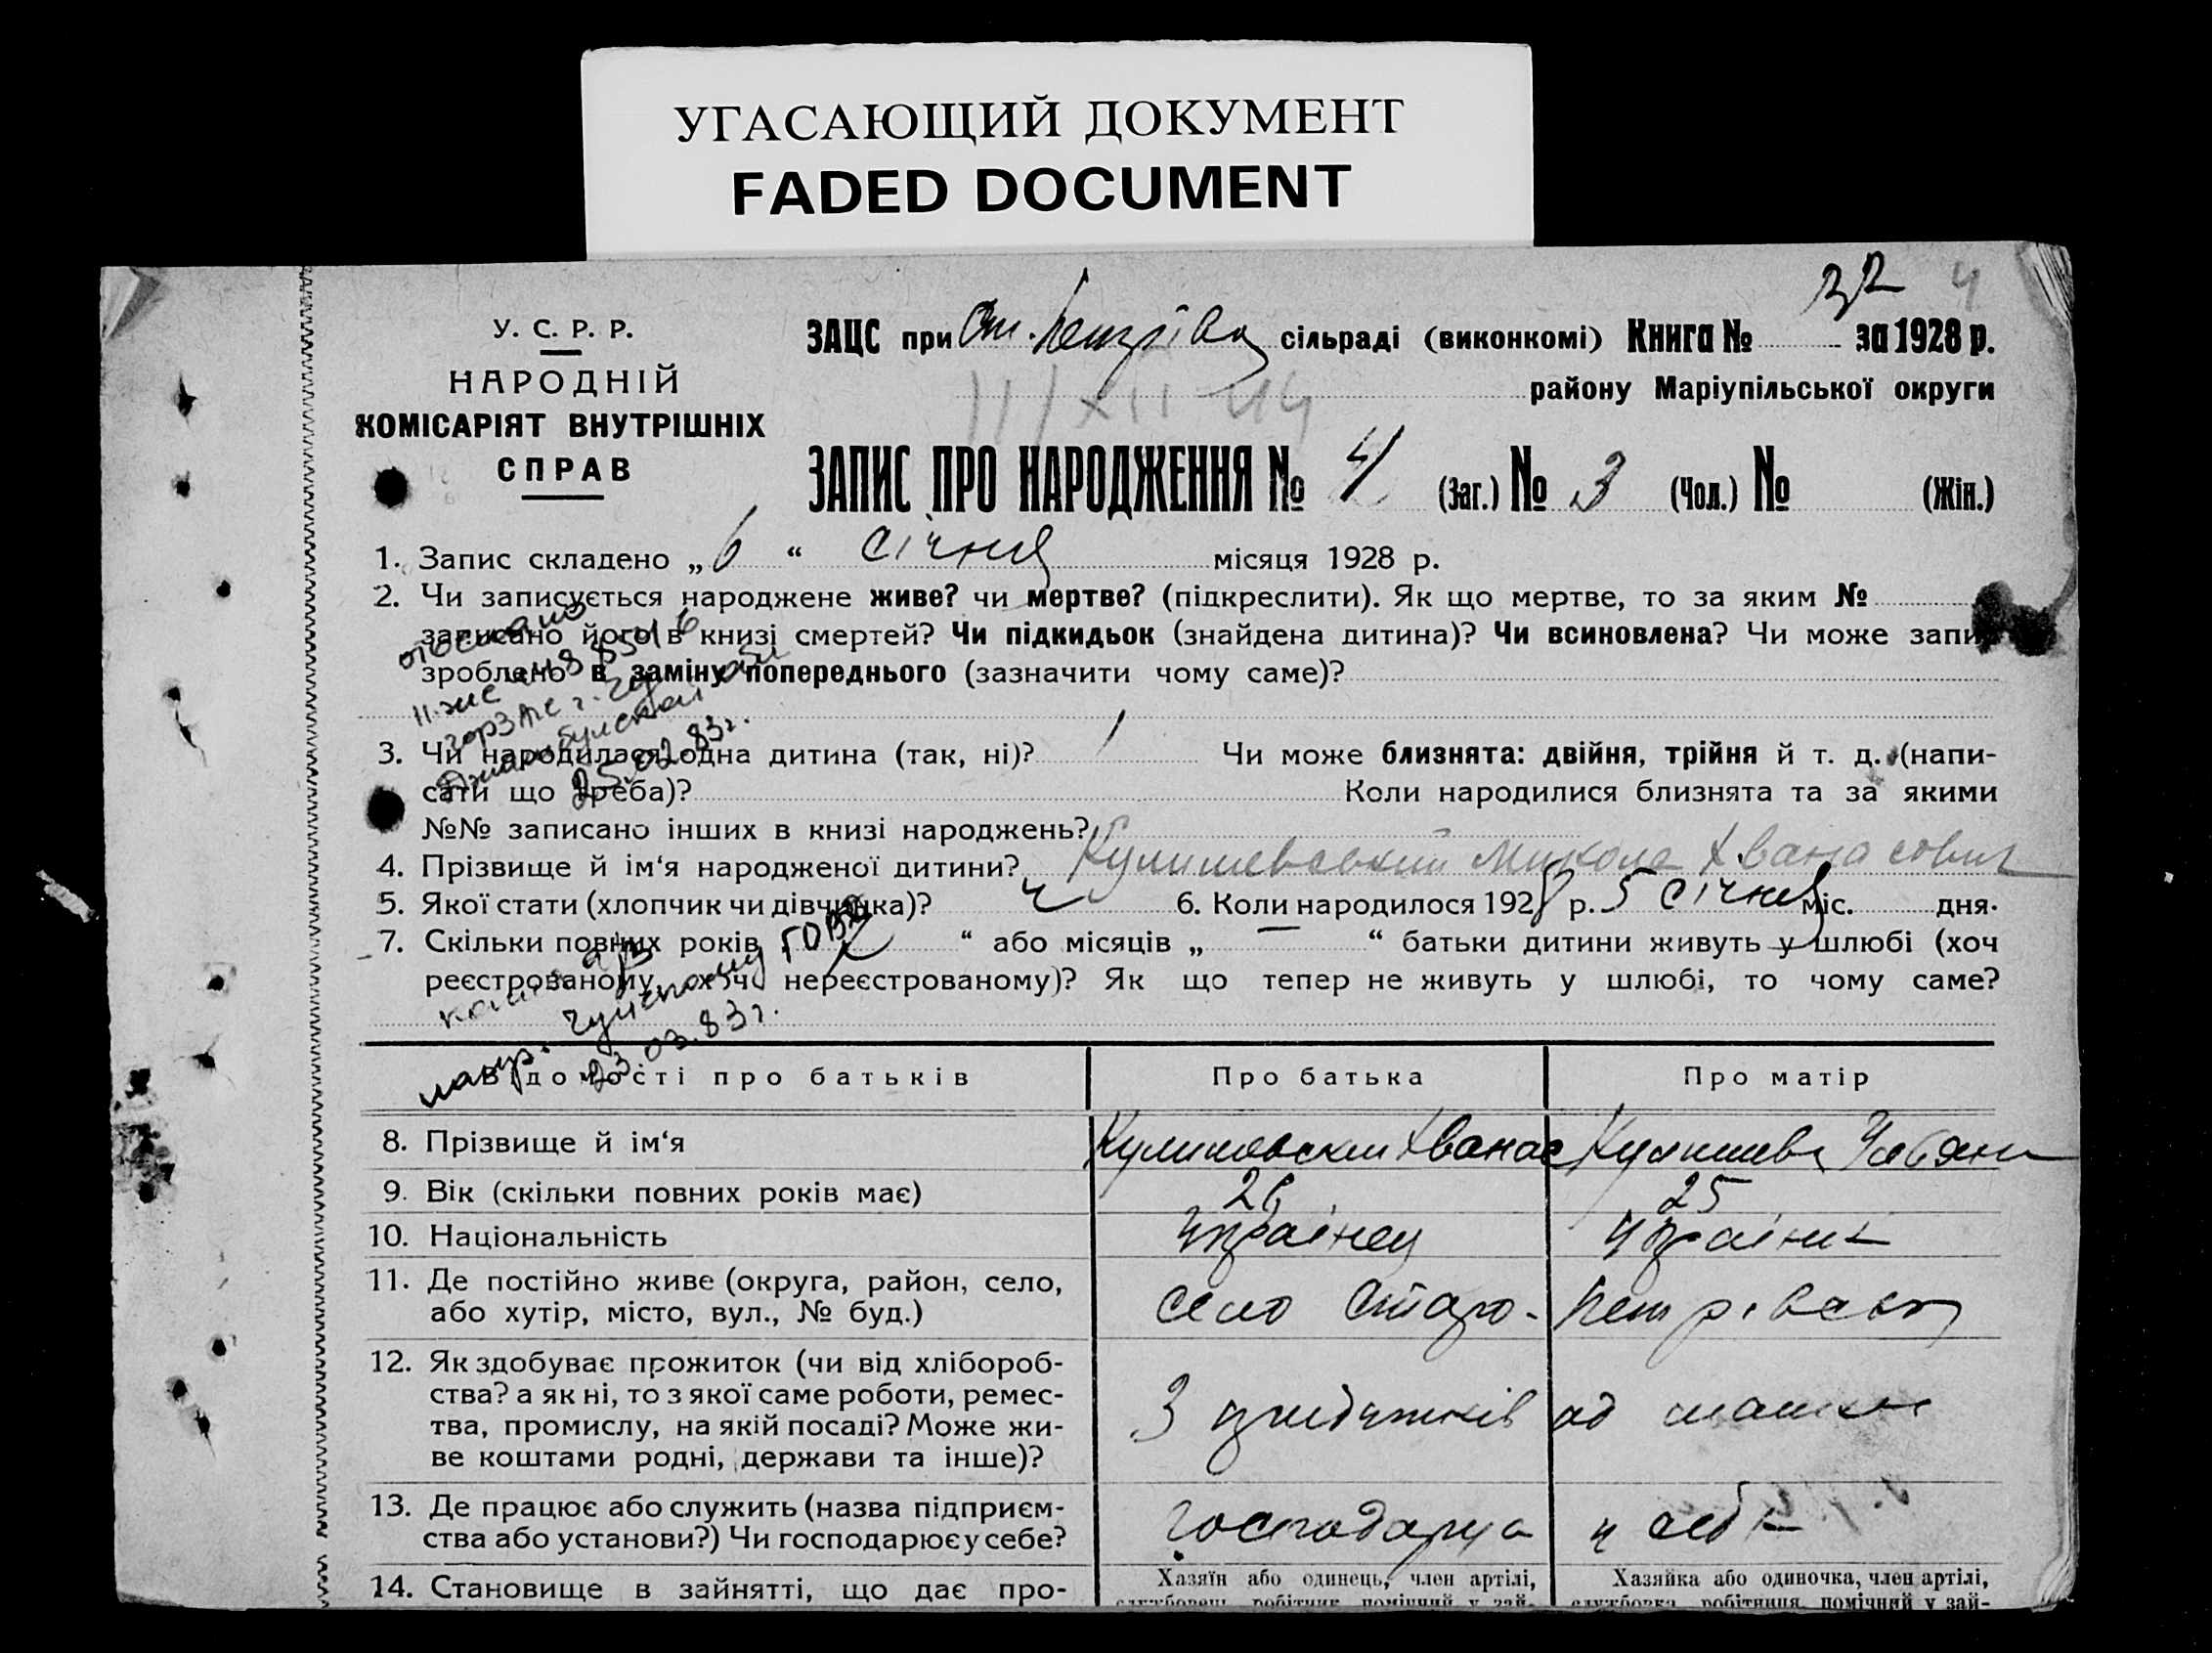 УГАСАЮЩИЙ ДОКУМЕНТ
FADED DOCUMENT
32 4
У. С. Р. Р.
НАРОДНІЙ
КОМІСАРІЯТ ВНУТРІШНІХ
СПРАВ
ЗАЦС при Ст. Петрівка сільраді (виконкомі) Книга № за 1928 р.
району Маріупільської округи
ЗАПИС ПРО НАРОДЖЕННЯ № 4 (Заг.) № 3 (Чол.) № (Жін.)
1. Запис складено „6“ січня місяця 1928 р.
2. Чи записується народжене живе? чи мертве? (підкреслити). Як що мертве, то за яким №
записано його в книзі смертей? Чи підкидьок (знайдена дитина)? Чи всиновлена? Чи може запи
зроблено в заміну попереднього (зазначити чому саме)?
25.02.83г.
3. Чи народилася одна дитина (так, ні)? 1 Чи може близнята: двійня, трійня й т. д. (напи-
сати що треба)? Коли народилися близнята та за якими
№№ записано інших в книзі народжень?
4. Прізвище й ім‘я народженої дитини? Кулишевський Микола Хванасович
5. Якої стати (хлопчик чи дівчинка)? ч 6. Коли народилося 1928 р. 5 січня міс. дня.
7. Скільки повних років „ “ або місяців „ — “ батьки дитини живуть у шлюбі (хоч
реєстрованому, хоч нереєстрованому)? Як що тепер не живуть у шлюбі, то чому саме?
23.03.83г.
Відомості про батьків Про батька Про матір
8. Прізвище й ім‘я Кулишевский Хванас Кулишева
9. Вік (скільки повних років має) 26 25
10. Національність Українец Україн
11. Де постійно живе (округа, район, село,
або хутір, місто, вул., № буд.) село Старо-
12. Як здобуває прожиток (чи від хлібороб-
ства? а як ні, то з якої саме роботи, ремес-
тва, промислу, на якій посаді? Може жи-
ве коштами родні, держави та інше)?
13. Де працює або служить (назва підприєм-
ства або установи?) Чи господарює у себе? господарує у себе
14. Становище в зайнятті, що дає про- Хазяїн або одинець, член артілі, Хазяйка або одиночка, член артілі,
службовець, робітник, помічний у зай- службовка, робітниця, помічний у зай-